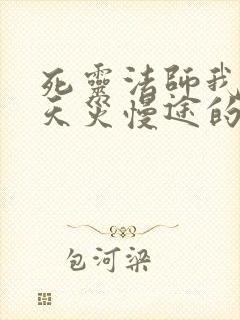 死靈法師我
天災慢途的
包河梁